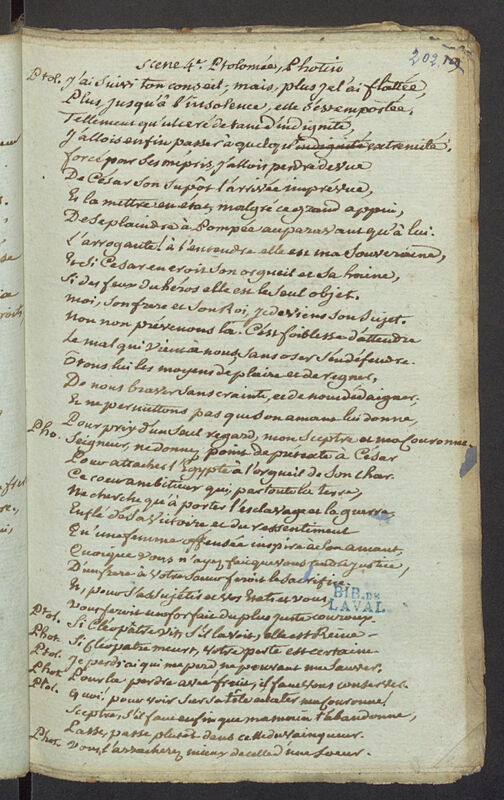 202.
Scene 4e. Ptolomée, Photin
Ptol. J'ai suivi ton conseil, mais, plus je l'ai flattée,
Plus jusqu'à l'insolence, elle s'est emportée,
Tellement qu'ulceré de tant d'indignité,
J'allois enfin passer à quelque indignité extremité.
forcé par ses mepris, j'allois perdre de vue
De César son supôt l'arrivée imprevue,
Et la mettre en etat, malgré ce grand appui,
De se plaindre à Pompée auparavant qu'à lui.
L'arrogante! à l'entendre elle est ma souveraine,
Et si César en croit son orgueil et sa haine,
Si des feux du héros elle est le seul objet.
moi, son frere et son Roi, je deviens son sujet.
Non non prévenons la. C'est foiblesse d'attendre
Le mal qui vient à nous sans oser s'en défendre.
Ôtons lui les moyens de plaire et de regner,
De nous braver sans crainte, et de nous dédaigner,
Et ne permettons pas que son amant lui donne,
Pour prix d'un seul regard, mon sceptre et ma Couronne.
Pho. Seigneur, ne donnez point de prétexte à César
Pour attacher l'Egypte à l'orgueil de son char.
Ce coeur ambitieux qui, par toute la terre,
Ne cherche qu'à porter l'esclavage et la guerre,
Enflé de sa victoire et du ressentiment
Qu'une femme offensée inspire à son amant,
Quoique vous n'ayez fait que vous rendre justice,
D'une
Et, pour s'assujetir et vos Etats et vous,
Vous feroit un forfait du plus juste couroux.
Ptol. Si Cléopâtre vit, s'il la voit, elle est Reine
Phot. Si Cléopatre meurt, votre perte est certaine
Ptol. Je perdrai qui me perd ne pouvant me sauver.
Phot. Pour la perdre avec fruit, il faut vous conserver.
Ptol. Quoi, pour voir sur sa tête éclater ma couronne!
Sceptre, s'il faut enfin que ma main t'abandonne,
Passe, passe plutôt dans celle du vainqueur.
Phot. Vous l'arracherez mieux de celle d'une soeur.
BIB. DE
LAVAL